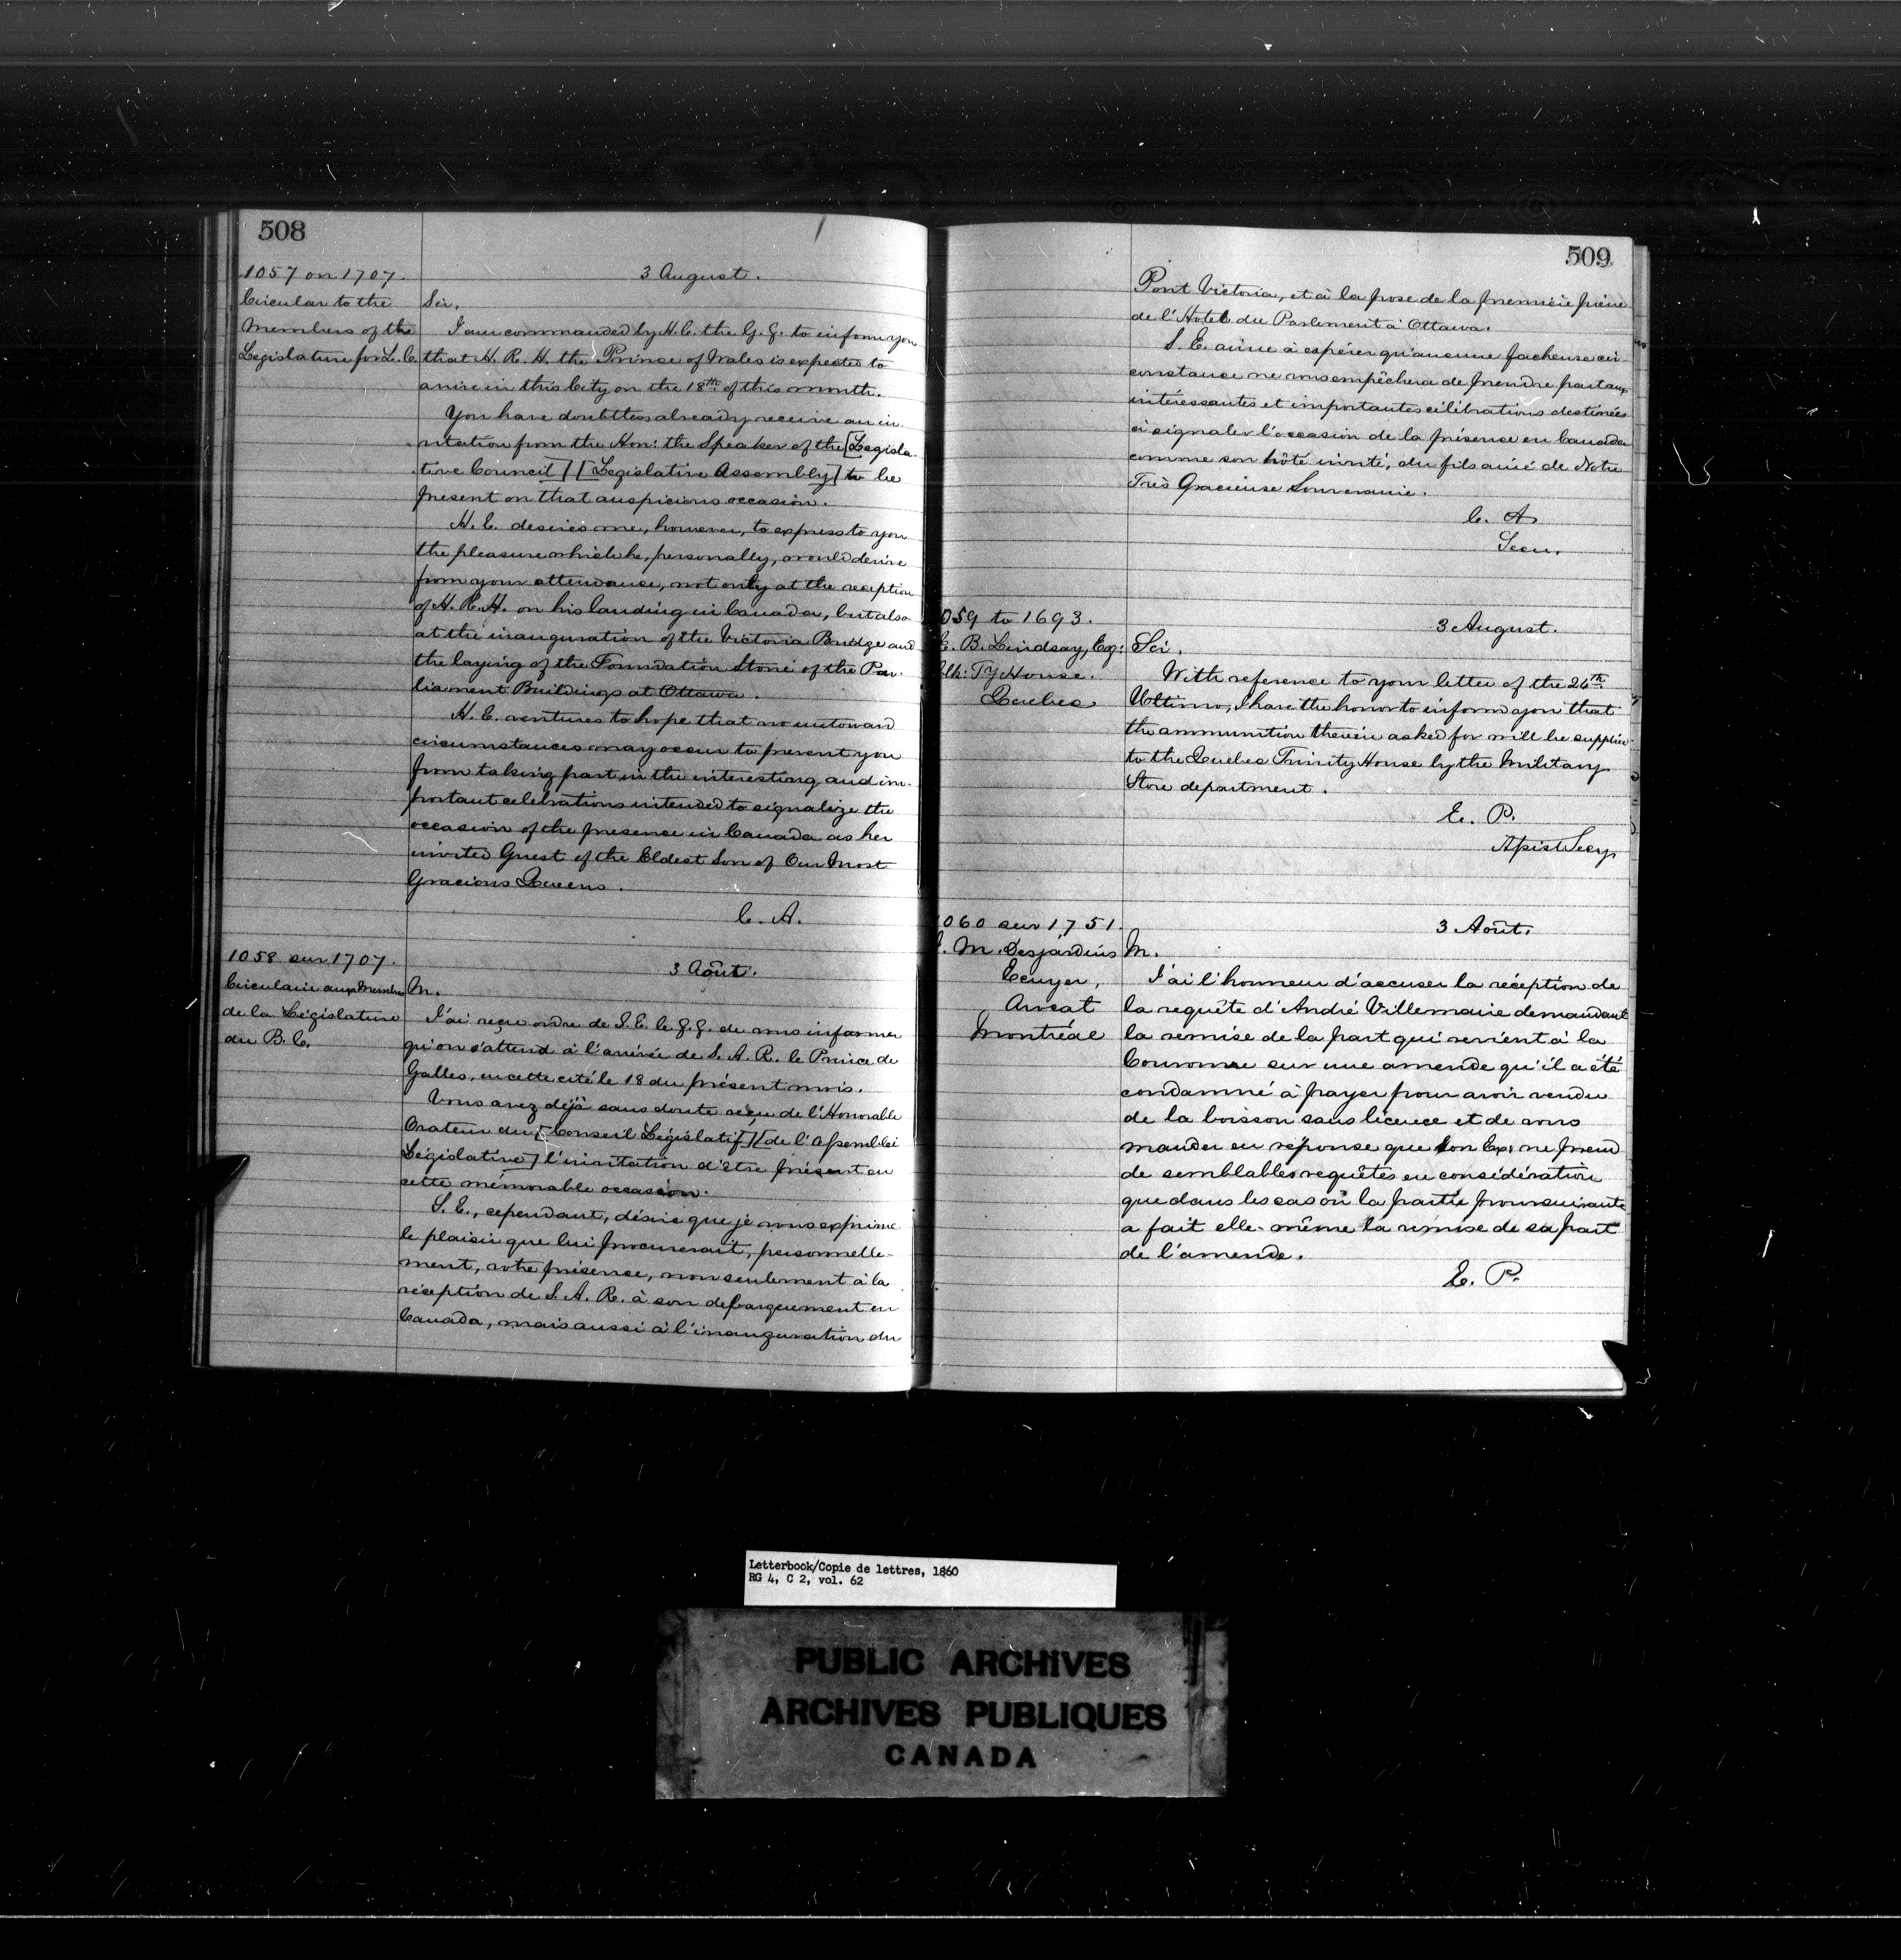 508
1057 on 1707.
Circular to the
Members of the
Legislature for L. C.
3 August.
Sir,
I am commanded by H. E. the G. G. to inform you
that H. R. H. the Prince of Wales is expected to
arrive in this City on the 18th of this month.
You have doubtless already receive an in
vitation from the Hon: the Speaker of the [Legisla-
tive Council] [Legislative Assembly] to be
present on that auspicious occasion.
H. E. desires me, however, to express to you
the pleasure which he, personally, would derive
from your attendance, not only at the reception
of H. R. H. on his landing in Canada, but also
at the inauguration of the Victoria Bridge and
the laying of the Foundation Stone of the Par-
liament Buildings at Ottawa.
H. E. ventures to hope that no untoward
circumstances may occur to prevent you
from taking part in the interesting and im-
portant celebrations intended to signalize the
occasion of the presence in Canada as her
invited Guest of the Eldest Son of Our Most
Gracious Queens.
C. A.
1058 sur 1707.
Circulaire aux Membres
de la Législature
du B. C.
3 Août.
M.
J'ai reçu ordre de S. E. le G. G. de vous informer
qu'on s'attend à l'arrivée de S. A. R. le Prince de
Galles, en cette cité le 18 du présent mois.
Vous avez déjà sans doute reçu de l'Honorable
Orateur du [Conseil Législatif] [de l'Assemblée
Législative] l'invitation d'être présent en
cette mémorable occasion.
S. E., cependant, désire que je vous exprime
le plaisir que lui procurerait, personnelle-
ment, votre présence, non seulement à la
réception de S. A. R. à son debarquement en
Canada, mais aussi à l'inauguration du
509
Pont Victoria, et à la pose de la première pierre
de l'Hotel du Parlement à Ottawa.
S. E. aime à espérer qu'aucune facheuse cir-
constance ne vous empêchera de prendre part aux
intéressantes et importantes célébrations destinées
à signaler l'occasion de la présence en Canada
comme son hôte invité, du fils ainé de Notre
Très Gracieuse Souveraine.
C. A
Secy.
059 to 1693.
E. B. Lindsay, Esq:
Clk: Ty House.
Quebec
3 August.
Sir,
With reference to your letter of the 26th
Ultimo, I have the honor to inform you that
the ammunition therein asked for will be supplied
to the Quebec Trinity House by the Military
Store department.
E. P.
Assist Secy
060 sur 1751.
M. Desjardins
Ecuyer,
Avocat
Montréal
3 Août.
M.
J'ai l'honneur d'accuser la réception de
la requête d'André Villemaire demandant
la remise de la part qui revient à la
Couronne sur une amende qu'il a été
condamné à payer pour avoir vendu
de la boisson sans licence et de vous
mander en réponse que Son Ex: ne prend
de semblables requêtes en considération
que dans les cas où la partie poursuivante
a fait elle-même la remise de sa part
de l'amende.
E. P.
Letterbook/Copie de lettres, 1860
RG 4, C 2, vol. 62
PUBLIC ARCHIVES
ARCHIVES PUBLIQUES
CANADA